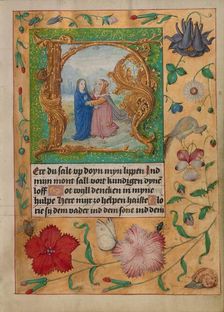 Ere du salt up doyn myn lippen Ind
mun mont sall vort kundigen dyne
loff Got will dencken in myne
hulpe Here nut zo helpen haiste
rie sy dem vader ind dem sone ind dem